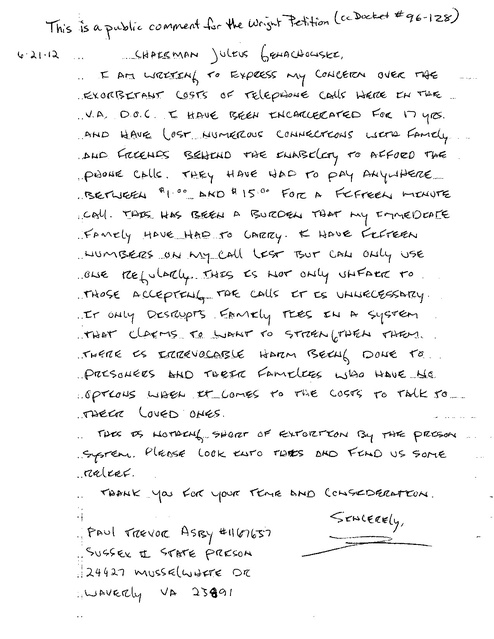 This is a public comment for the Wright Petition (CC Docket #96-128)
4-21-12 CHAIRMAN JULIUS GENACHOWSKI,
I AM WRITING TO EXPRESS MY CONCERN OVER THE
EXORBITANT COSTS OF TELEPHONE CALLS HERE IN THE
V.A. D.O.C. I HAVE BEEN INCARCERATED FOR 17 YRS.
AND HAVE LOST NUMEROUS CONNECTIONS WITH FAMILY
AND FRIENDS BEHIND THE INABILITY TO AFFORD THE
PHONE CALLS. THEY HAVE HAD TO PAY ANYWHERE
BETWEEN $1.00 AND $15.00 FOR A FIFTEEN MINUTE
CALL. THIS HAS BEEN A BURDEN THAT MY IMMEDIATE
FAMILY HAVE HAD TO CARRY. I HAVE FIFTEEN
NUMBERS ON MY CALL LIST BUT CAN ONLY USE
ONE REGULARLY. THIS IS NOT ONLY UNFAIR TO
THOSE ACCEPTING THE CALLS IT IS UNNECESSARY.
IT ONLY DISRUPTS FAMILY TIES IN A SYSTEM
THAT CLAIMS TO WANT TO STRENGTHEN THEM.
THERE IS IRREVOCABLE HARM BEING DONE TO
PRISONERS AND THEIR FAMILIES WHO HAVE NO
OPTIONS WHEN IT COMES TO THE COSTS TO TALK TO
THEIR LOVED ONES.
THIS IS NOTHING SHORT OF EXTORTION BY THE PRISON
SYSTEM. PLEASE LOOK INTO THIS AND FIND US SOME
RELIEF.
THANK YOU FOR YOUR TIME AND CONSIDERATION.
SINCERELY,
PAUL TREVOR ASBY #1167657
SUSSEX II STATE PRISON
24427 MUSSELWHITE DR
WAVERLY VA 23891